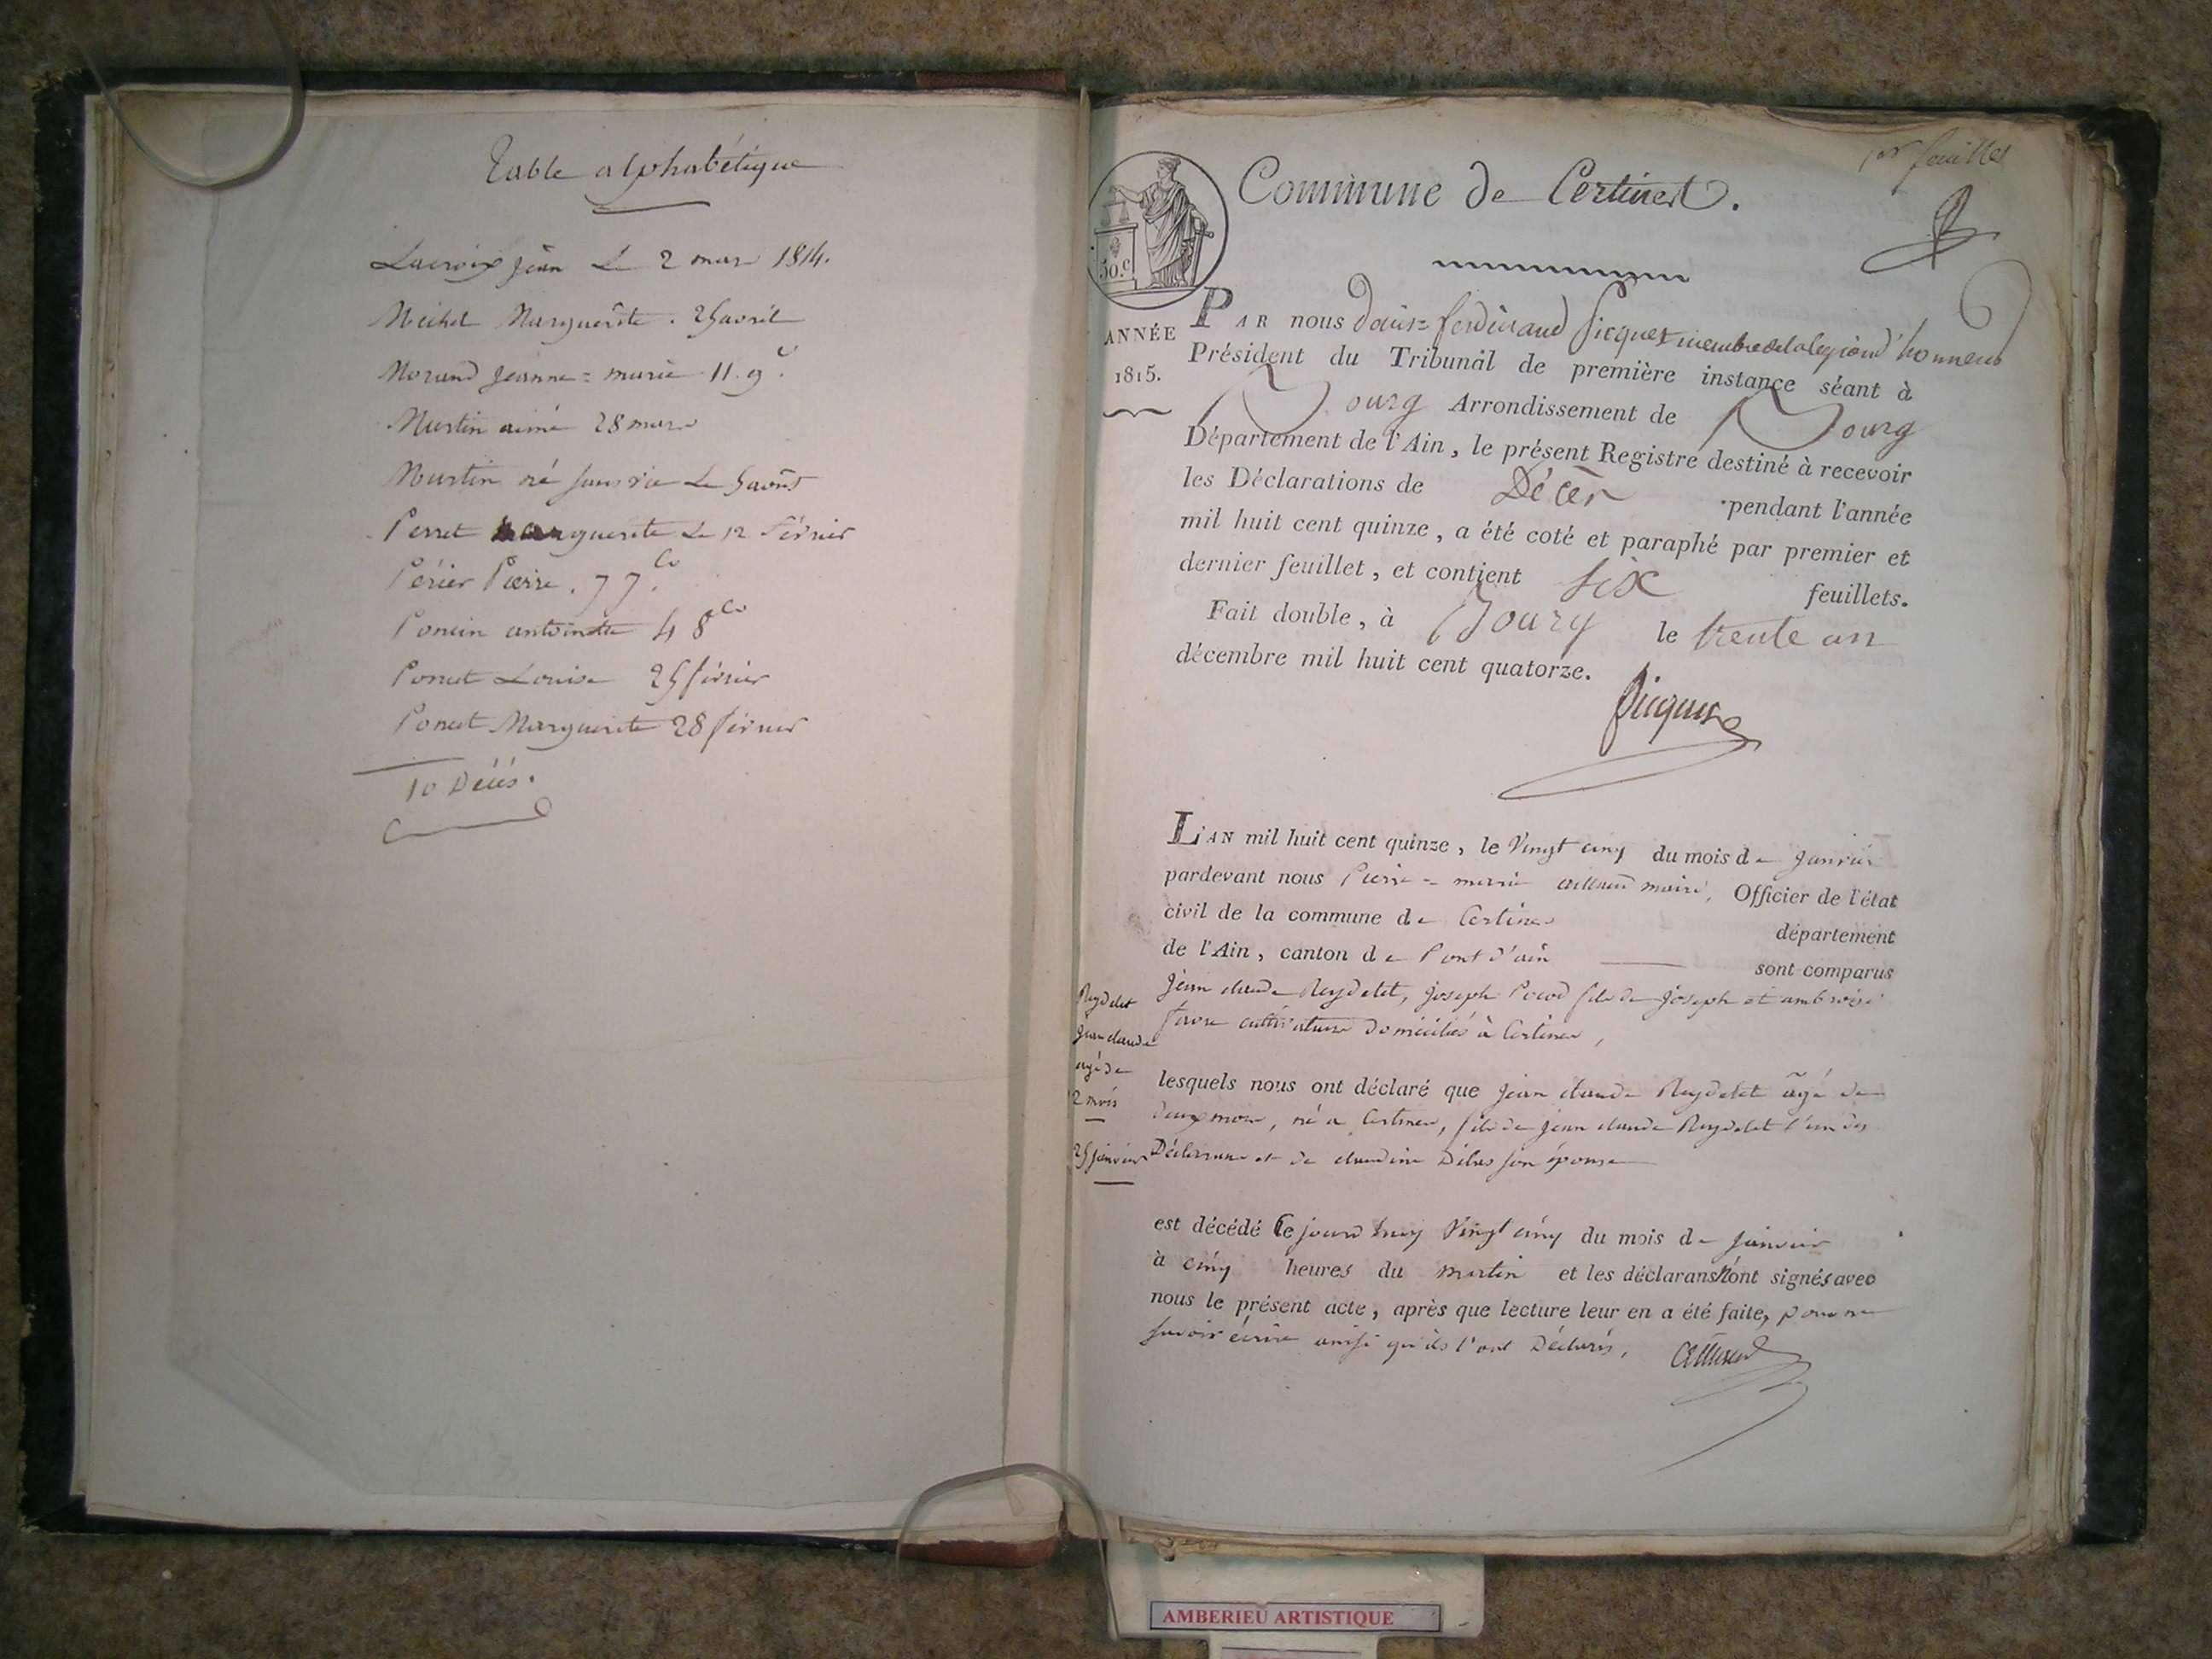 Table alphabétique
Lacroix jean Le 2 mars 1814.
Michel Marguerite. 25 avril
Morand jeanne = marie 11. 9.e
Martin aimé 28 mars
Martin né sans vie Le 5 août
Perret marguerite Le 12 février
Périer Pierre. 7 7.bre
Poncin antoinette 4 8bre
Poncet Louise 25 février
Poncet Marguerite 28 février
10 Décés.
1er feuillet
Commune de Certines.
50.c
ANNÉE
1815.
PAR nous Louis = ferdinand Picquet membre de la legion d'honneur
Président du Tribunal de première instance séant à
Bourg Arrondissement de Bourg
Département de l'Ain, le présent Registre destiné à recevoir
les Déclarations de Décès pendant l'année
mil huit cent quinze, a été coté et paraphé par premier et
dernier feuillet, et contient six feuillets.
Fait double, à Bourg le trente un
décembre mil huit cent quatorze.
Picquet
L'AN mil huit cent quinze, le Vingt cinq du mois de janvier
pardevant nous Pierre = marie maire, Officier de l'état
civil de la commune de Certines département
de l'Ain, canton de Pont d'ain sont comparus
jean claude Reydelet, joseph fils de joseph et ambroise
favre cultivateurs domiciliés à Certines,
Reydelet
jean claude
agé de
2 mois
25 janvier
lesquels nous ont déclaré que jean claude Reydelet âgé de
deux mois, né a Certines, fils de jean claude Reydelet l'un des
Déclarans et de claudine son épouse
est décédé ce jourd'huy Vingt cinq du mois de janvier
à cinq heures du martin et les déclarans n'ont signés avec
nous le présent acte, après que lecture leur en a été faite, pour ne
savoir écrire ainsi qu'ils l'ont Déclarés.
AMBERIEU ARTISTIQUE